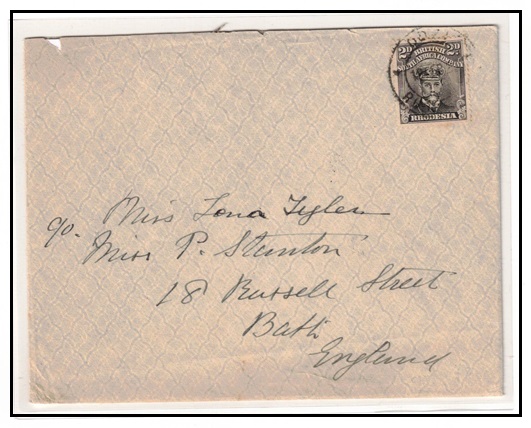 2D BRITISH 2D
SOUTH AFRICA COMPANY
RHODESIA
Miss Lona Tyglen
c/o. Miss P. Stanton
18 Russell Street
Bath
England